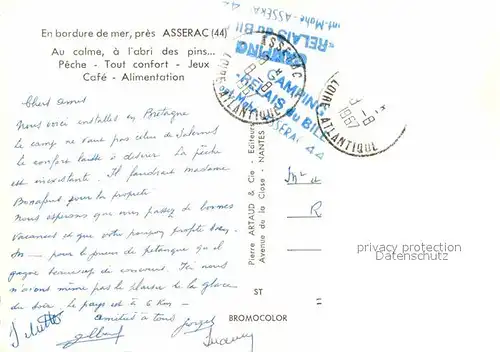 En bordure de mer, près ASSERAC (44)
Au calme, à l'abri des pins...
Pêche - Tout confort - Jeux
Café - Alimentation
CAMPING
"RELAIS du BIL"
ASSERAC 44
CAMPING
RELAIS du BILL
ASSERAC 44
ASSERAC
LOIRE ATLANTIQUE
8-8
1967
LOIRE ATLANTIQUE
Chers amis
Nous voici installés en Bretagne
le camp ne vaut pas celui de Salernes
le confort laisse à désirer. La pêche
est inexistante. Il faudrait madame
Bonaput pour la propreté
Nous espérons que vous passez de bonnes
vacances et que votre
pour le joueur de petanque qu'il
gagne beaucoup de concours. Ici nous
n'avons même pas le plaisir de la glace
du soir. le pays est à 6 km -
amitiés à tous
Pierre ARTAUD & Cie - Editeurs
Avenue de la Close - NANTES
privacy protection
Datenschutz
ST
BROMOCOLOR